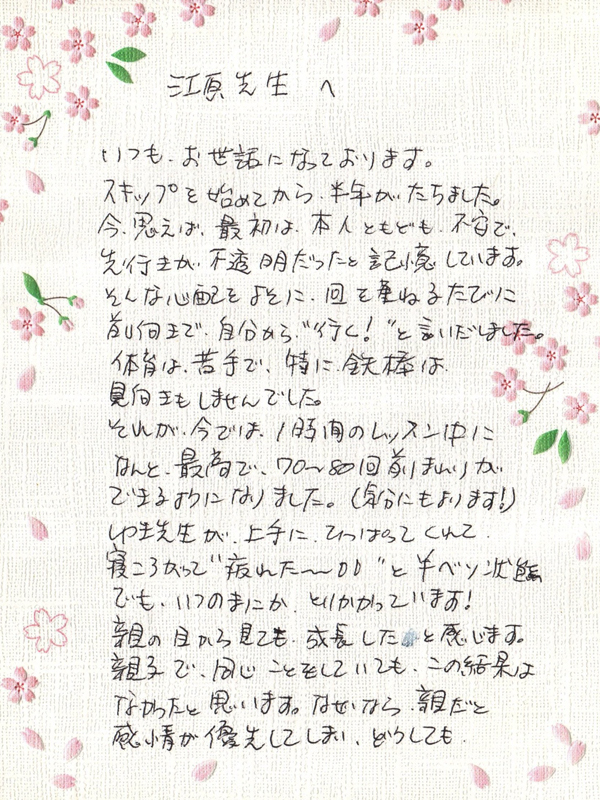 江原先生 へ
いつも、お世話になっております。
スキップを始めてから、半年がたちました。
今、思えば、最初は、本人ともども、不安で、
先行きが、不透明だったと記憶しています。
そんな心配をよそに、回を重ねるたびに
前向きで、自分から、"行く！"と言いだしました。
体育は、苦手で、特に、鉄棒は
見向きもしませんでした。
それが、今では、1時間のレッスン中に
なんと、最高で、70〜80回前まわりが
できるようになりました。(気分にもよります!)
ゆき先生が、上手に、ひっぱってくれて、
寝ころがって"疲れた〜〜"と半ベソ状態
でも、いつのまにか、とりかかっています!
親の目から見ても、成長したと感じます。
親子で、同じことをしていても、この結果は
なかったと思います。なぜなら、親だと
感情が優先してしまい、どうしても、